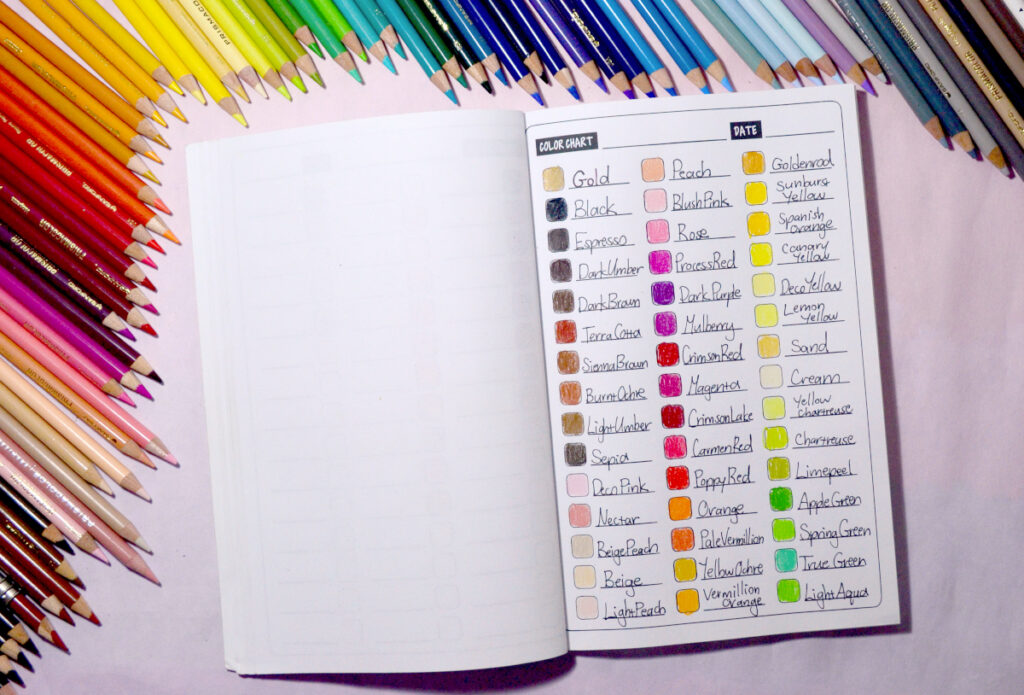 PRISMACOLOR
PRISMACOLOR
COLOR CHART
DATE
Gold
Black
Espresso
Dark Umber
Dark Brown
Terra Cotta
Sienna Brown
Burnt Ochre
Light Umber
Sepia
Deco Pink
Nectar
Beige Peach
Beige
Light Peach
Peach
Blush Pink
Rose
Process Red
Dark Purple
Mulberry
Crimson Red
Magenta
Crimson Lake
Carmen Red
Poppy Red
Orange
Pale Vermillion
Yellow Ochre
Vermillion
Orange
Goldenrod
Sunburst
Yellow
Spanish
Orange
Canary
Yellow
Deco Yellow
Lemon
Yellow
Sand
Cream
Yellow
Chartreuse
Chartreuse
Limepeel
Apple Green
Spring Green
True Green
Light Aqua